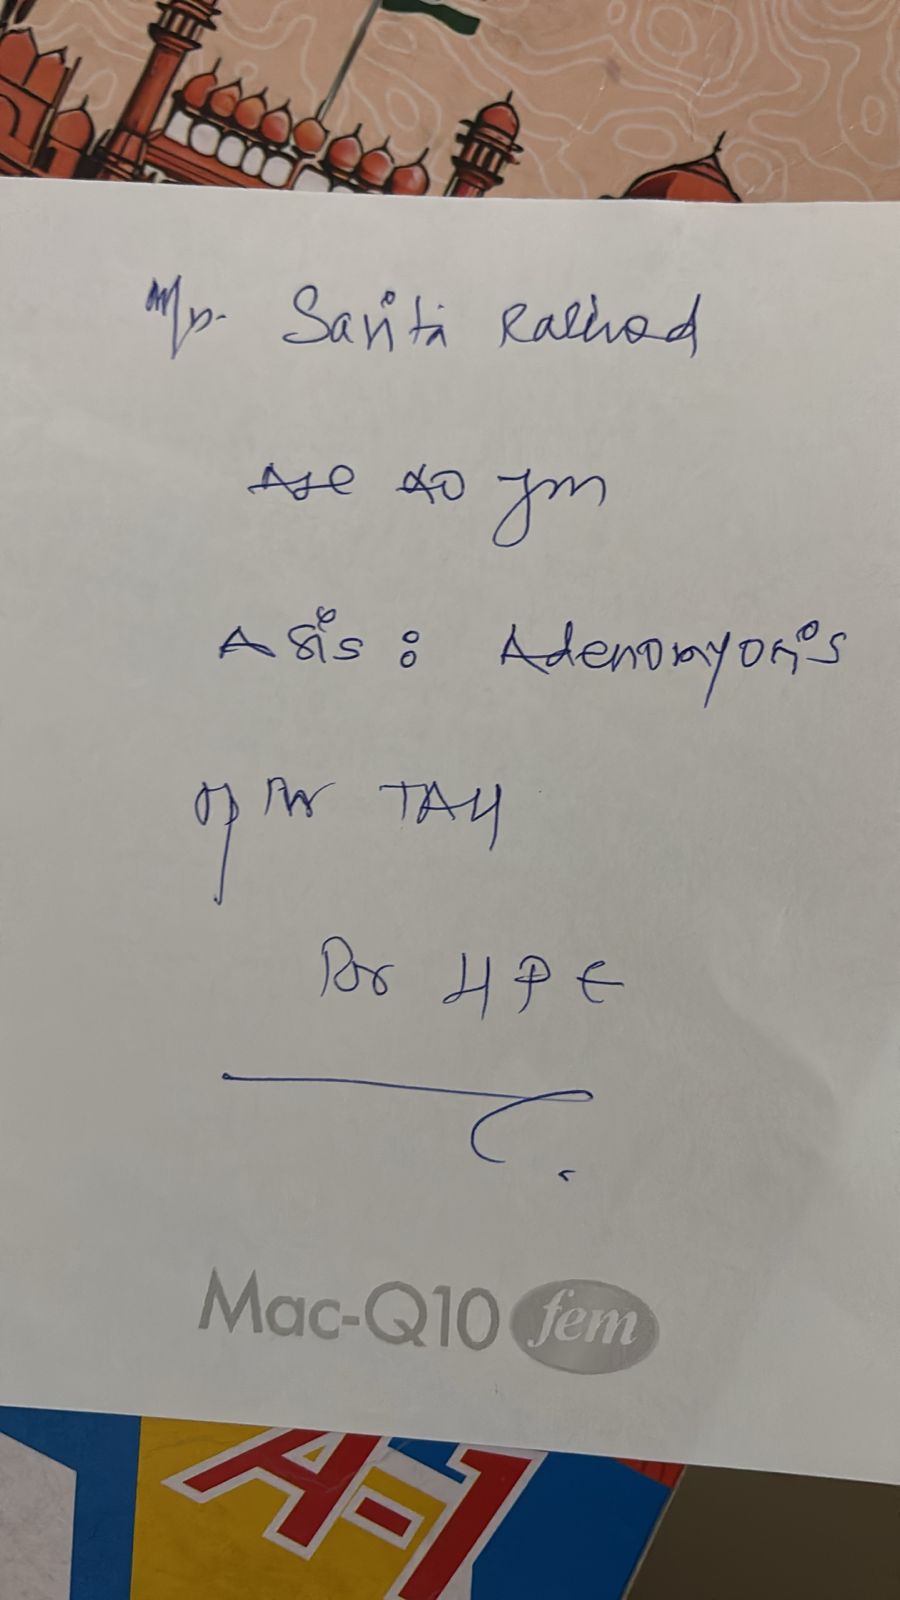 Mrs. Sarita Rathod
Age 40 yrs
Δsis : Adenomyosis
op for TAH
for HPE
Mac-Q10 fem
A-1